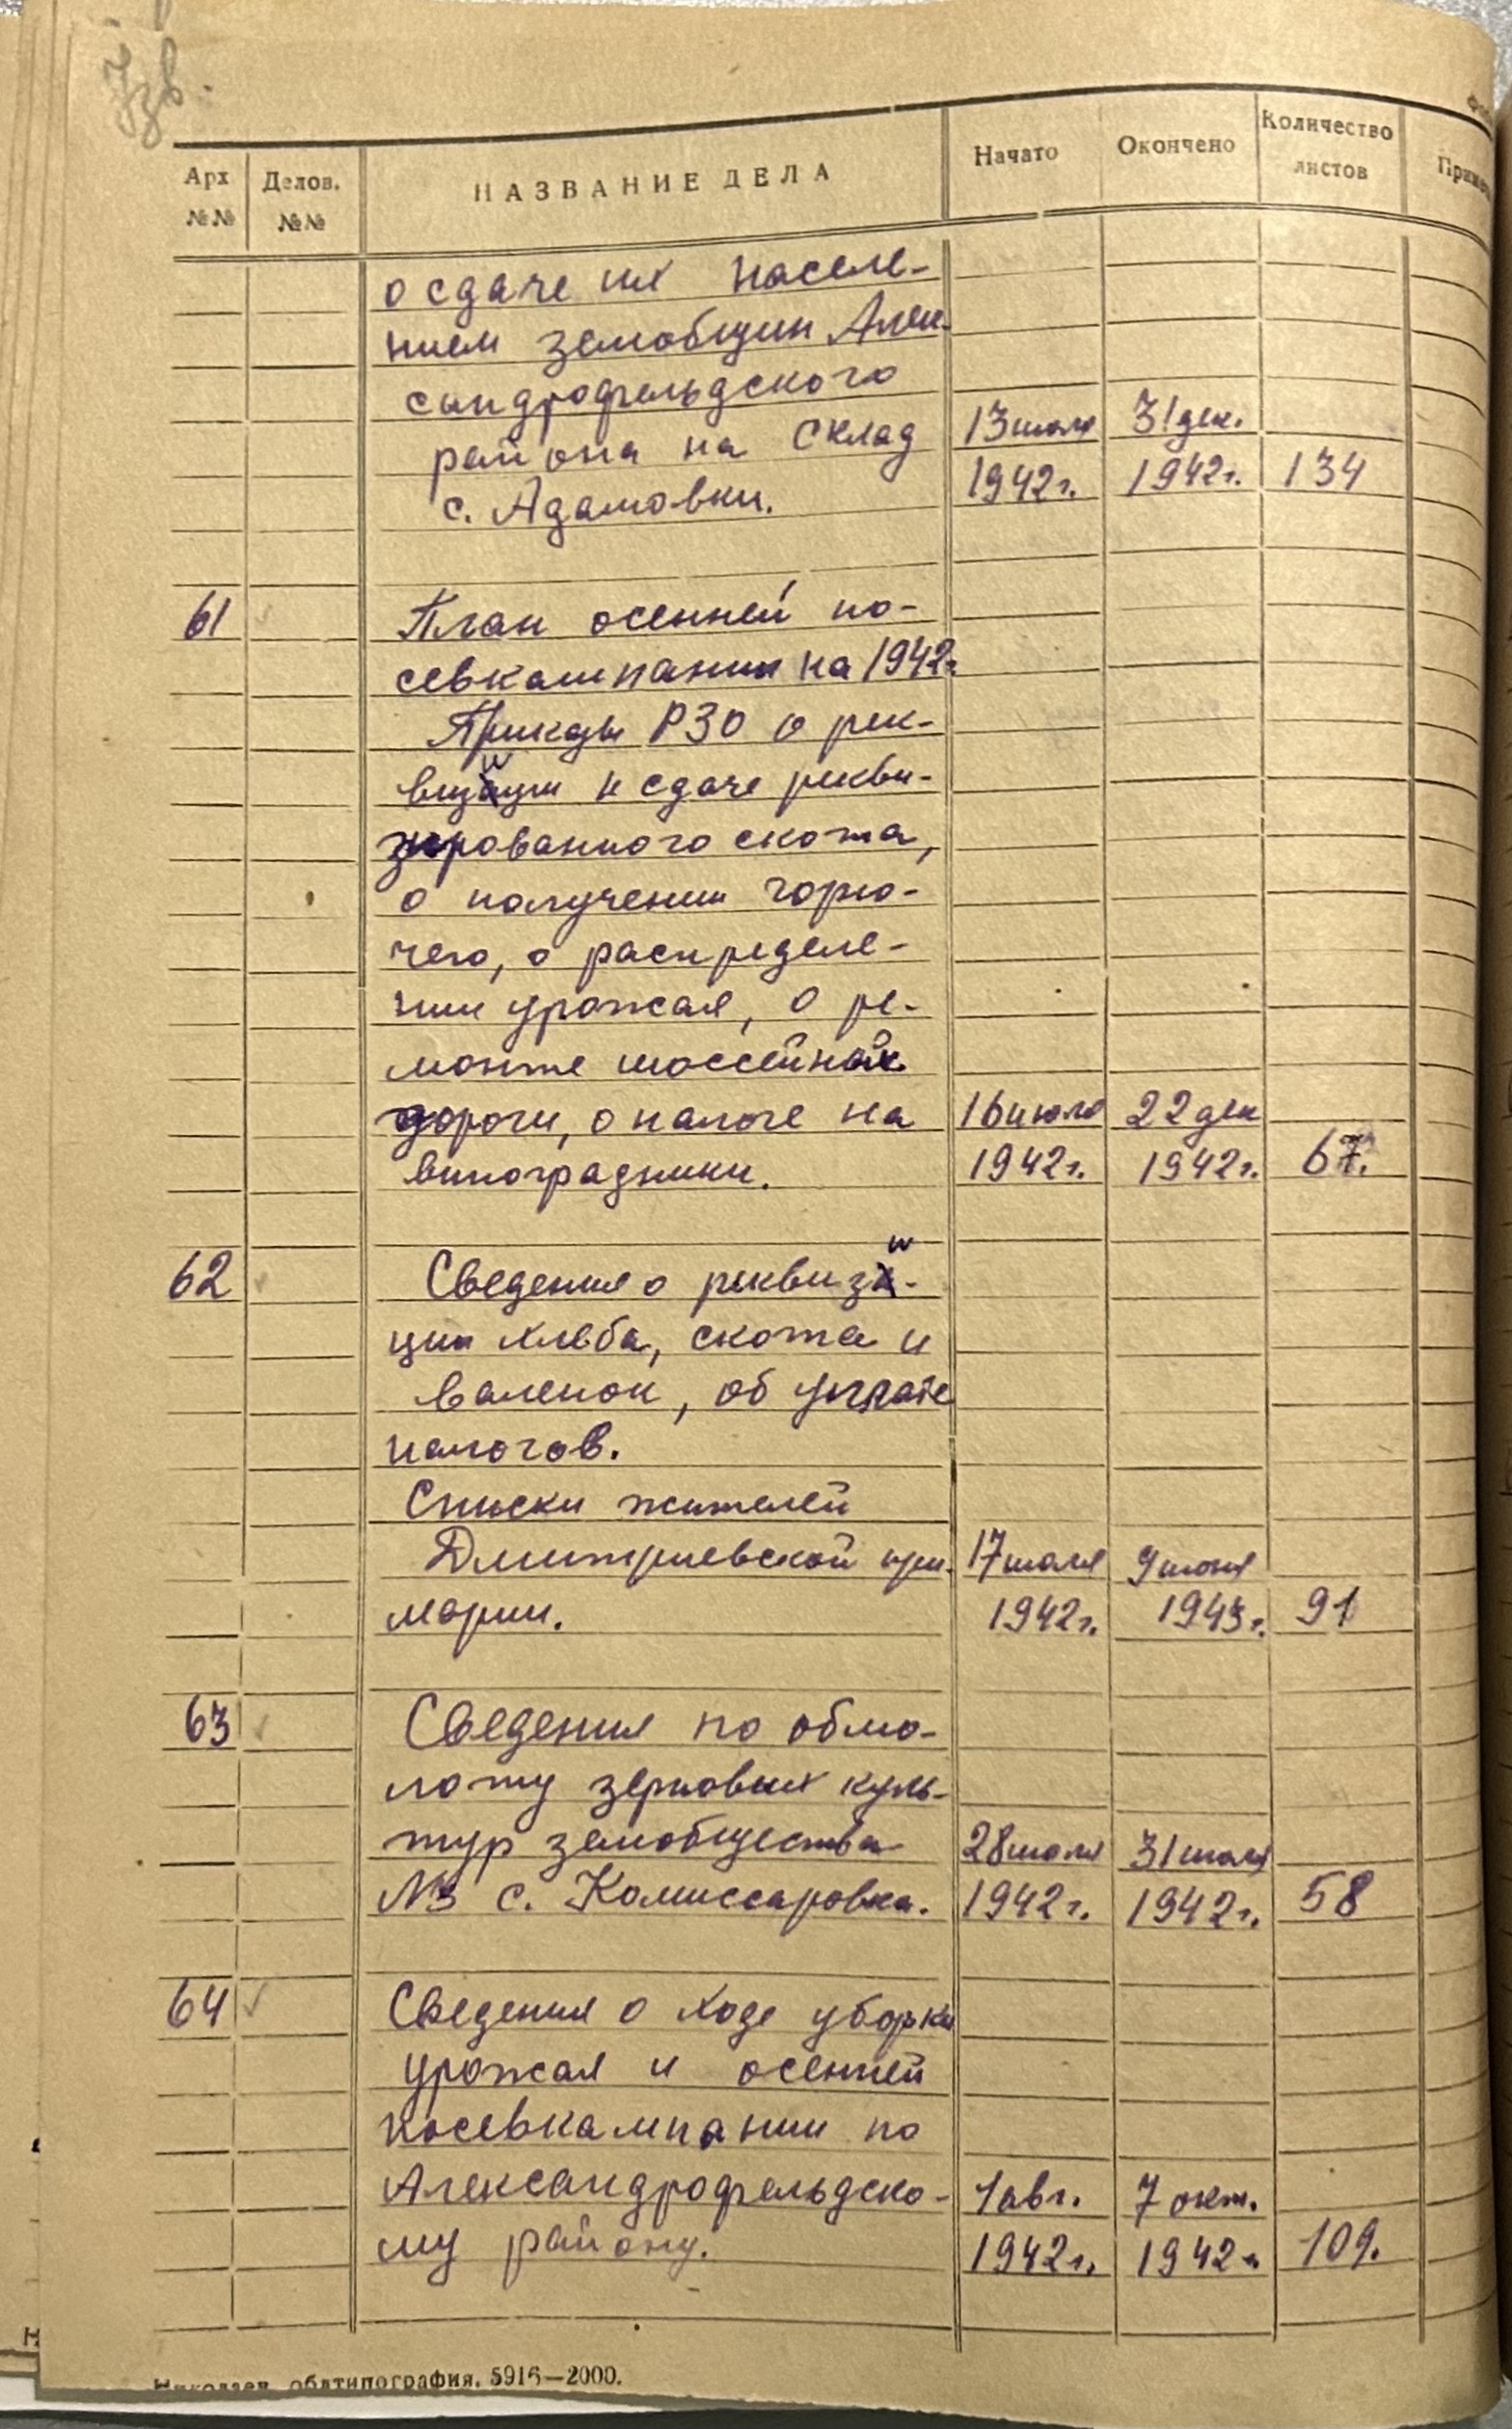 Арх №№ | Делов. №№ | НАЗВАНИЕ ДЕЛА | Начато | Окончено | Количество листов
о сдаче их населе-
нием земобщин Алек-
сандрофельдского
района на склад | 13 июля | 31 дек.
с. Адамовки. | 1942г. | 1942г. | 134
61 | План осенней по-
севкампании на 1942г.
Приказы РЗО о рек-
визиции и сдаче рекви-
зированного скота,
о получении горю-
чего, о распределе-
нии урожая, о ре-
монте шоссейной
дороги, о налоге на | 16 июля | 22 дек
виноградники. | 1942г. | 1942г. | 67.
62 | Сведения о реквизи-
ции хлеба, скота и
валенок, об уплате
налогов.
Списки жителей
Дмитриевской при- | 17 июля | 9 июня
марии. | 1942г. | 1943г. | 91
63 | Сведения по обмо-
лоту зерновых куль-
тур земобщества | 28 июля | 31 июля
№3 с. Комиссаровка. | 1942г. | 1942г. | 58
64 | Сведения о ходе уборки
урожая и осенней
посевкампании по
Александрофельдско- | 1 авг. | 7 окт.
му району. | 1942г. | 1942г. | 109.
Николаев, облтипография. 5916—2000.